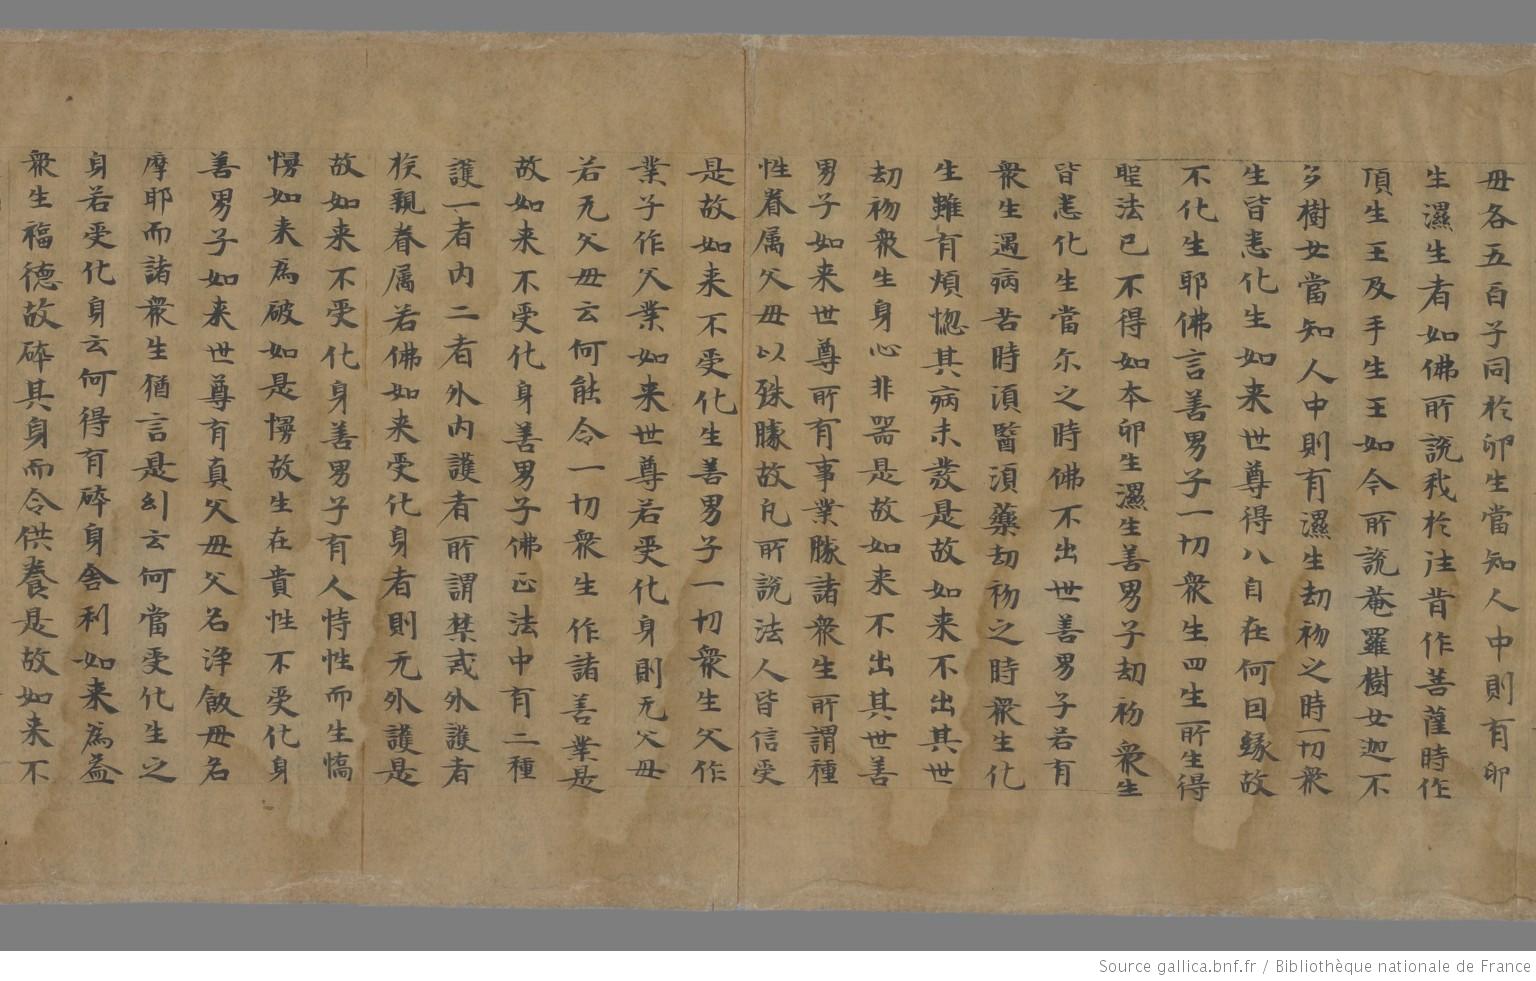 毋各五百子同於卵生當知人中則有卵
生濕生者如佛所說我於往昔作菩薩時作
頂生王及手生王如今所說菴羅樹女迦不
多樹女當知人中則有濕生劫初之時一切衆
生皆悉化生如来世尊得八自在何回緣故
不化生耶佛言善男子一切衆生四生所生得
聖法已不得如本卵生濕生善男子劫初衆生
皆悉化生當尓之時佛不出世善男子若有
衆生遇病苦時湏醫湏藥劫初之時衆生化
生雖有煩惚其病未發是故如来不出其世
劫初衆生身心非器是故如来不出其世善
男子如来世尊所有事業勝諸衆生所謂種
性眷属父毋以殊勝故凢所說法人皆信受
是故如来不受化生善男子一切衆生父作
業子作父業如来世尊若受化身則无父毋
若无父毋云何能令一切衆生作諸善業是
故如来不受化身善男子佛正法中有二種
護一者内二者外内護者所謂禁戒外護者
族親眷属若佛如来受化身者則无外護是
故如来不受化身善男子有人恃性而生憍
慢如来為破如是慢故生在貴性不受化身
善男子如来世尊有真父毋父名浄飯毋名
摩耶而諸衆生猶言是幻云何當受化生之
身若受化身云何得有碎身舍利如来為益
衆生福德故碎其身而令供養是故如来不